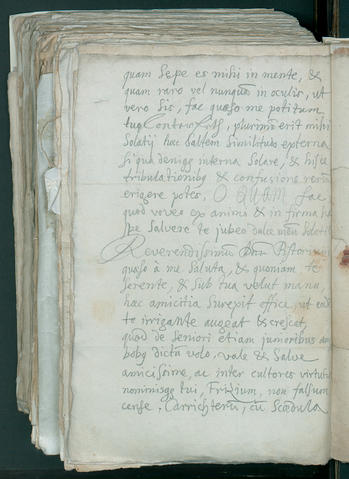 quam sepe es mihi in mente, &
quam raro vel nunquā in oculis, ut
vero sis, fac quæso me potitum
tuo Contrafeth, plurimū erit mihi
Solatij hac saltem similitudo externa
si qua deniqꝫ interna Solare, & hisce
tribulationibꝫ & confusione
erigere potes. O QUAM fac
quod voves ex animi & in firma
spe Salvere te jubeo dulce meū
Reverendissimū Dnm
quæso à me Saluta, & quoniam te
ferente, & sub tua velut manu
hac amicitia surepit officē, ut
te irrigante augeat & crescat,
quod de seniori etiam junioribus
bobꝫ dictū volo, vale & Salve
amicissime, ac inter cultores virtutū
nominisqꝫ tui, Fridium, non falsum
cense, Carrichterū, cū Scædula